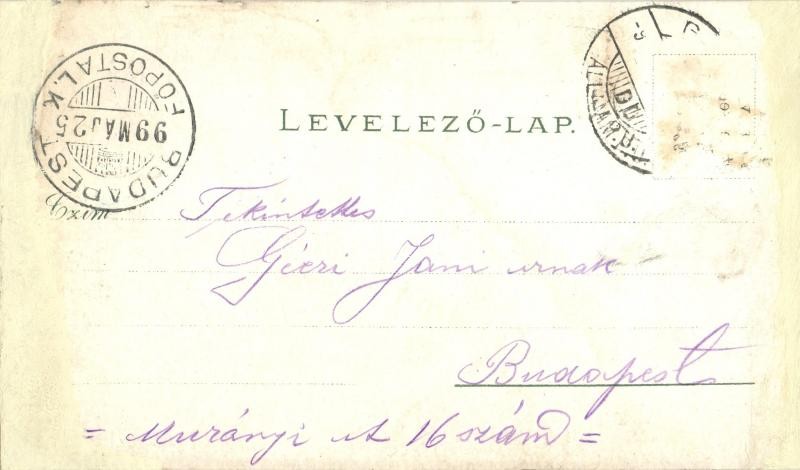 BUDAPEST FŐPOSTA L.K
99 MÁJ 25
LEVELEZŐ-LAP.
Czim
Tekintetes
Géczi Jani urnak
Budapest
= Murányi ut 16 szám =